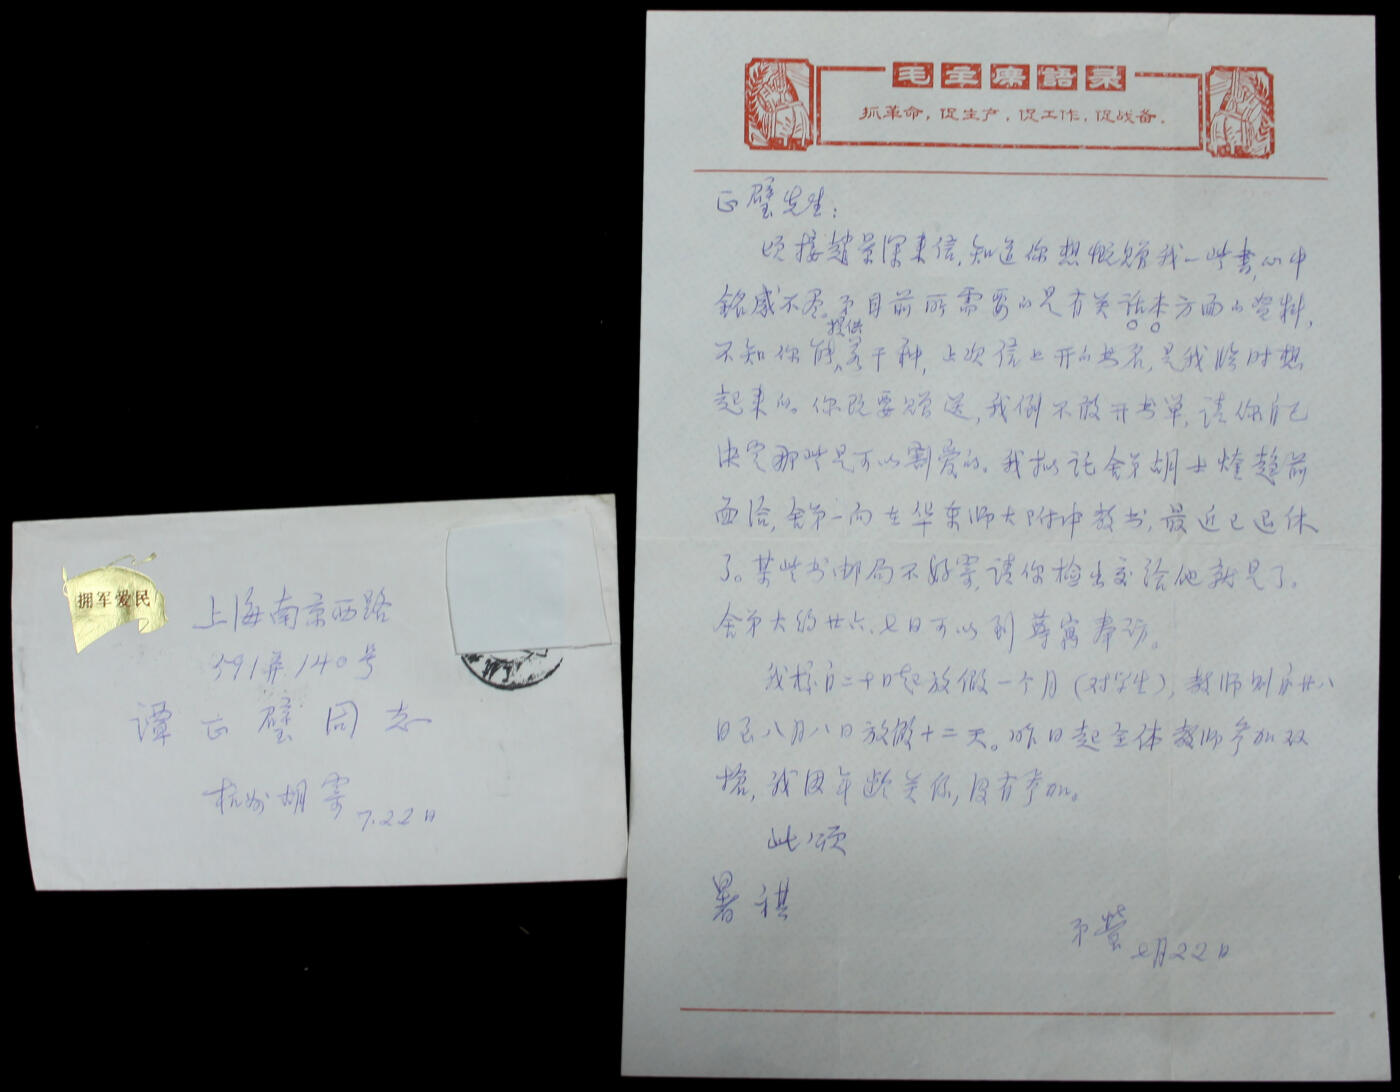 拥军爱民
上海南京西路
591弄140号
谭正璧同志
杭州胡寄
7.22日
毛主席语录
抓革命，促生产，促工作，促战备。
正璧先生：
顷接赵景深来信，知道你想慨赠我一些书，心中
铭感不尽。弟目前所需要的是有关话本方面的资料，
不知你能提供若干种，上次信上开的书名，是我临时想
起来的。你既要赠送，我倒不敢开书单，请你自己
决定那些是可以割爱的。我拟托舍弟胡士煃趋前
面洽，舍弟一向在华东师大附中教书，最近已退休
了。某些书邮局不好寄，请你检出交给他就是了。
舍弟大约廿六、七日可以到尊寓奉访。
我校自二十日起放假一个月（对学生），教师则自廿八
日至八月八日放假十二天。昨日起全体教师参加双
抢，我因年龄关系，没有参加。
此颂
暑祺
弟莹
七月22日